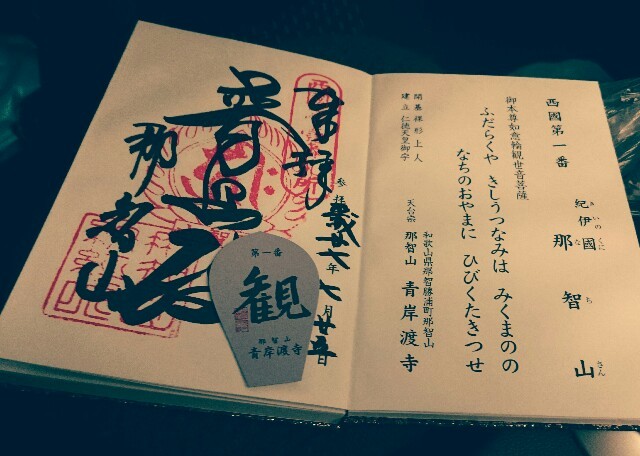 西國第一番
紀伊國 那智山
きいのくに なち さん
御本尊如意輪観世音菩薩
ふだらくや きしうつなみは みくまのの
なちのおやまに ひびくたきつせ
開基 裸形上人
建立 仁徳天皇御宇
和歌山県那智勝浦町那智山
天台宗 那智山 青岸渡寺
奉拝
参拝 年七月廿日
普照殿
那智山
第一番
観
那智山
青岸渡寺